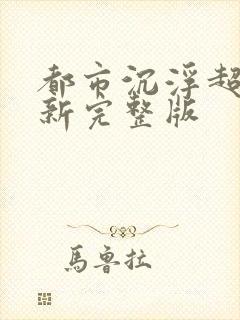 都市沉浮超
新完整版
馬魯拉